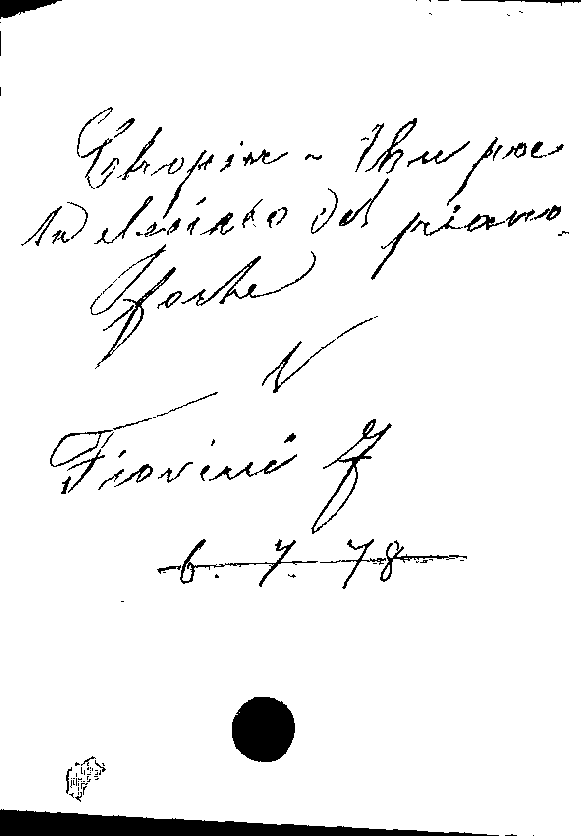 Chopin - The poe
del piano
forte
V
Fiorini F
6. 7. 78